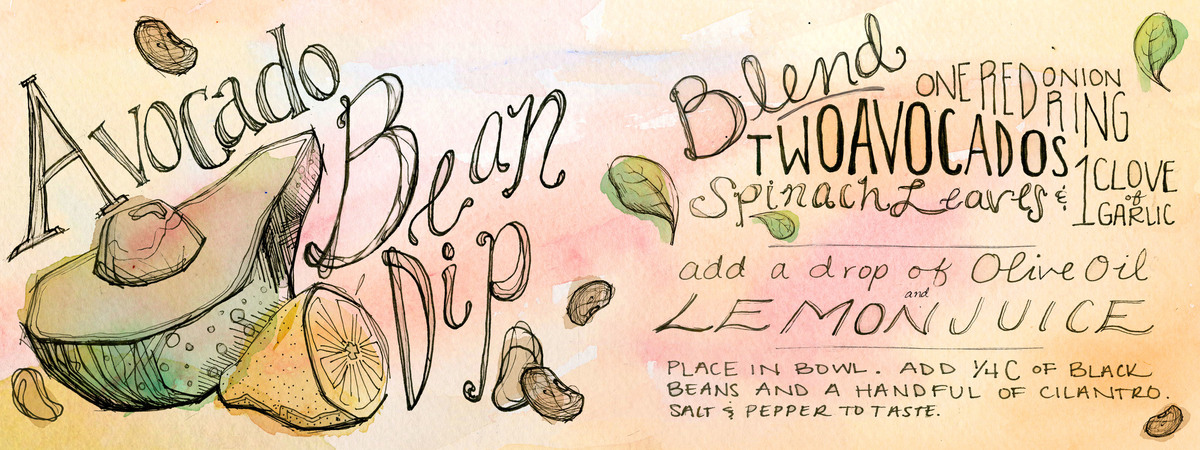 Avocado
Bean
Dip
Blend
ONE RED ONION RING
TWO AVOCADOS
Spinach Leaves &
1 CLOVE of GARLIC
add a drop of Olive Oil
and
LEMON JUICE
PLACE IN BOWL. ADD 1/4 C OF BLACK
BEANS AND A HANDFUL OF CILANTRO.
SALT & PEPPER TO TASTE.